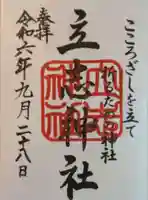 こころざしを立て
祈るたつし神社
立志神社
奉拝
令和六年九月二十八日